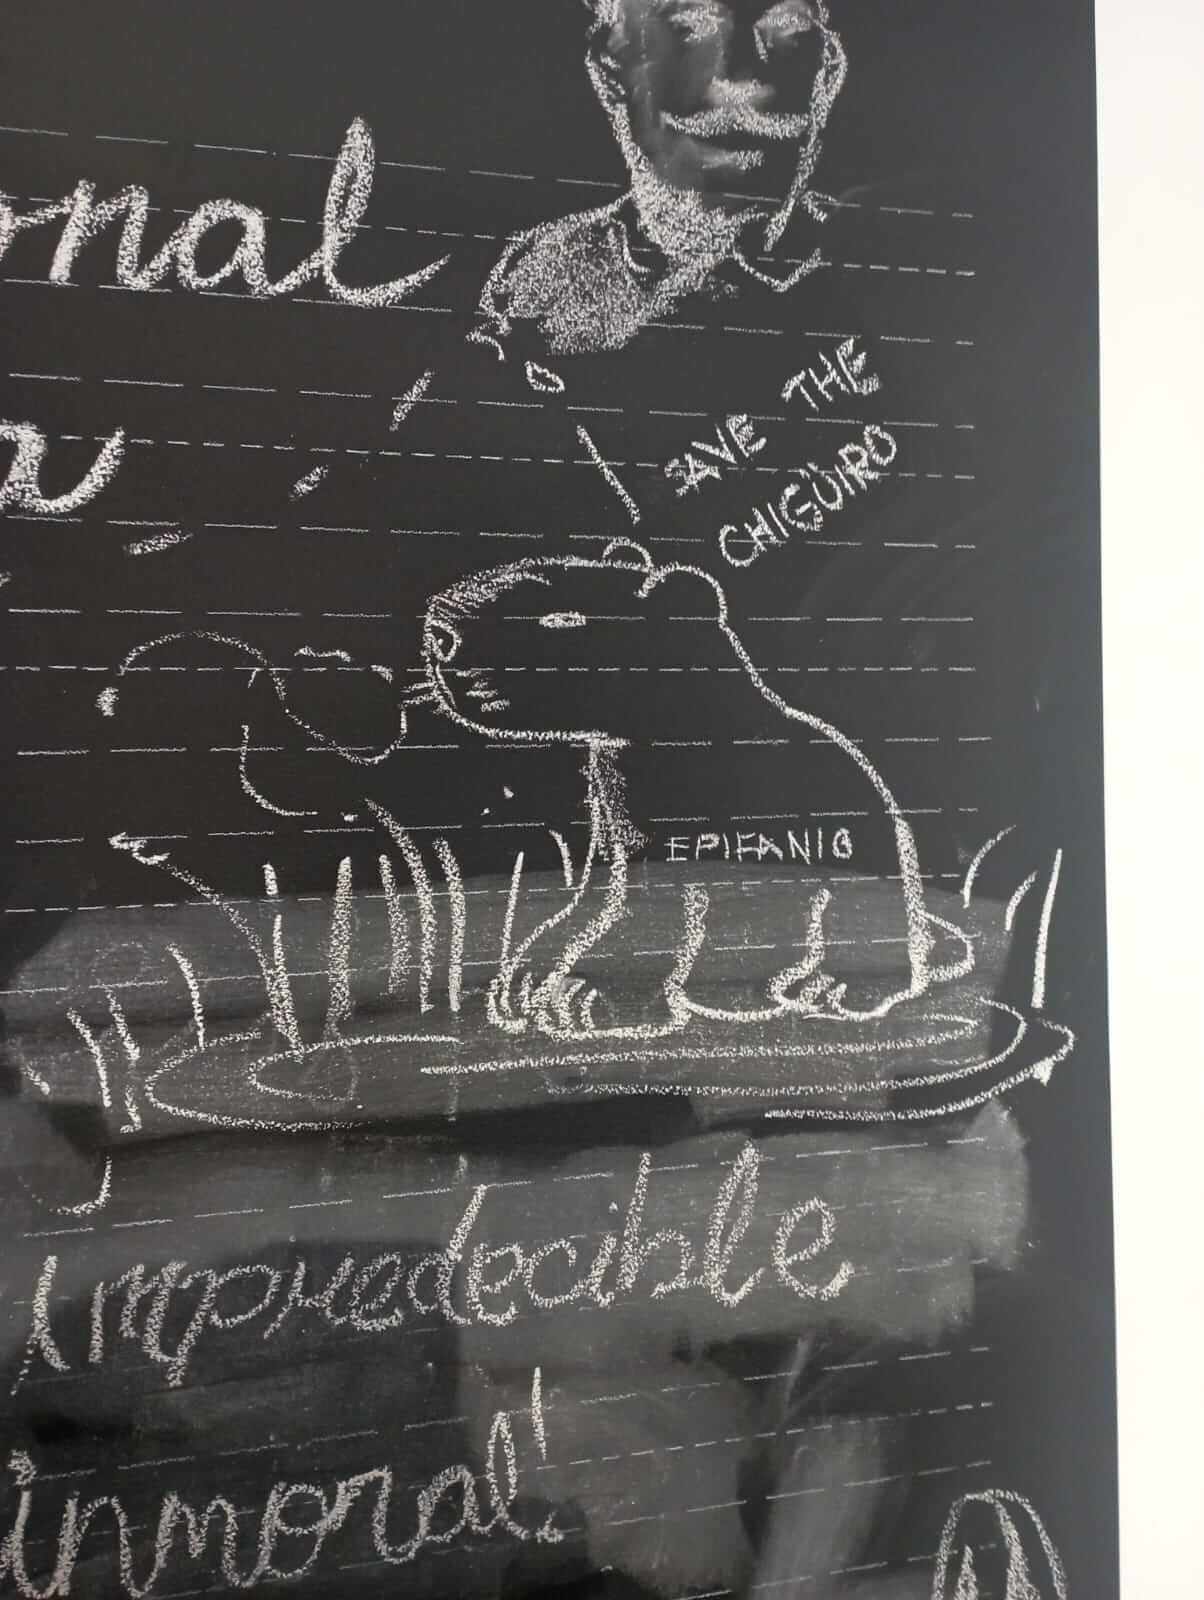 rnal
a
SAVE THE
CHIGÜIRO
EPIFANIO
impredecible
inmoral